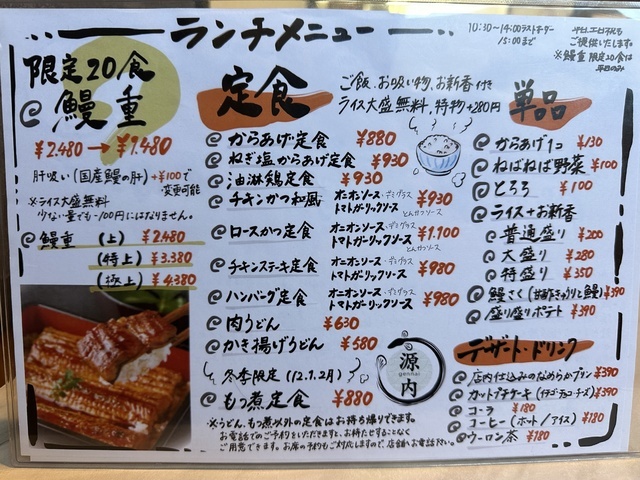 ランチメニュー
10:30~14:00ラストオーダー
15:00まで
平日、土日祝も
ご提供いたします。
※鰻重 限定20食は
平日のみ
限定20食
鰻重
¥2.480→¥1.480
肝吸い(国産鰻の肝)+¥100で
変更可能
※ライス大盛無料
少ない量でも-100円にはなりません。
鰻重 (上) ¥2.480
(特上) ¥3.380
(極上) ¥4.380
定食
ご飯、お吸い物、お新香付き
ライス大盛無料、特物+280円
からあげ定食 ¥880
ねぎ塩からあげ定食 ¥930
油淋鶏定食 ¥930
チキンかつ和風 オニオンソース・デミグラス
トマトガーリックソース ¥930
とんかつソース
ロースかつ定食 オニオンソース・デミグラス
トマトガーリックソース ¥1,100
とんかつソース
チキンステーキ定食 オニオンソース・デミグラス
トマトガーリックソース ¥980
ハンバーグ定食 オニオンソース・デミグラス
トマトガーリックソース ¥980
肉うどん ¥630
かき揚げうどん ¥580
冬季限定(12.1.2月)
もつ煮定食 ¥880
※うどん、もつ煮以外の定食はお持ち帰りできます。
お電話でのご予約をいただきますと、お待たせすることなく
ご用意できます。お席の予約もご対応しますので、店舗へお電話下さい。
源内
gennai
単品
からあげ1コ ¥130
ねばねば野菜 ¥100
とろろ ¥100
ライス+お新香
普通盛り ¥200
大盛り ¥280
特盛り ¥350
鰻ざく(甘酢きゅうりと鰻)¥390
盛り盛りポテト ¥390
デザート・ドリンク
店内仕込みのなめらかプリン ¥390
カップケーキ(イチゴ・チョコ・チーズ)¥390
コーラ ¥180
コーヒー(ホット/アイス) ¥180
ウーロン茶 ¥180